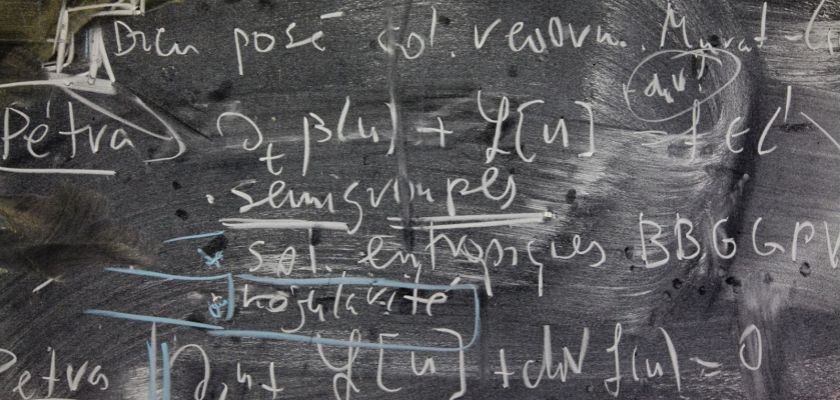 Bien posé sol. renorm. Murat-
Pétra ∂ₜ β(u) + ℒ[u] = f ∈ L¹
. semigroupes
sol. entropiques BBGGPV
régularité
Petra ∂ₜu + ℒ[u] + div f(u) = 0